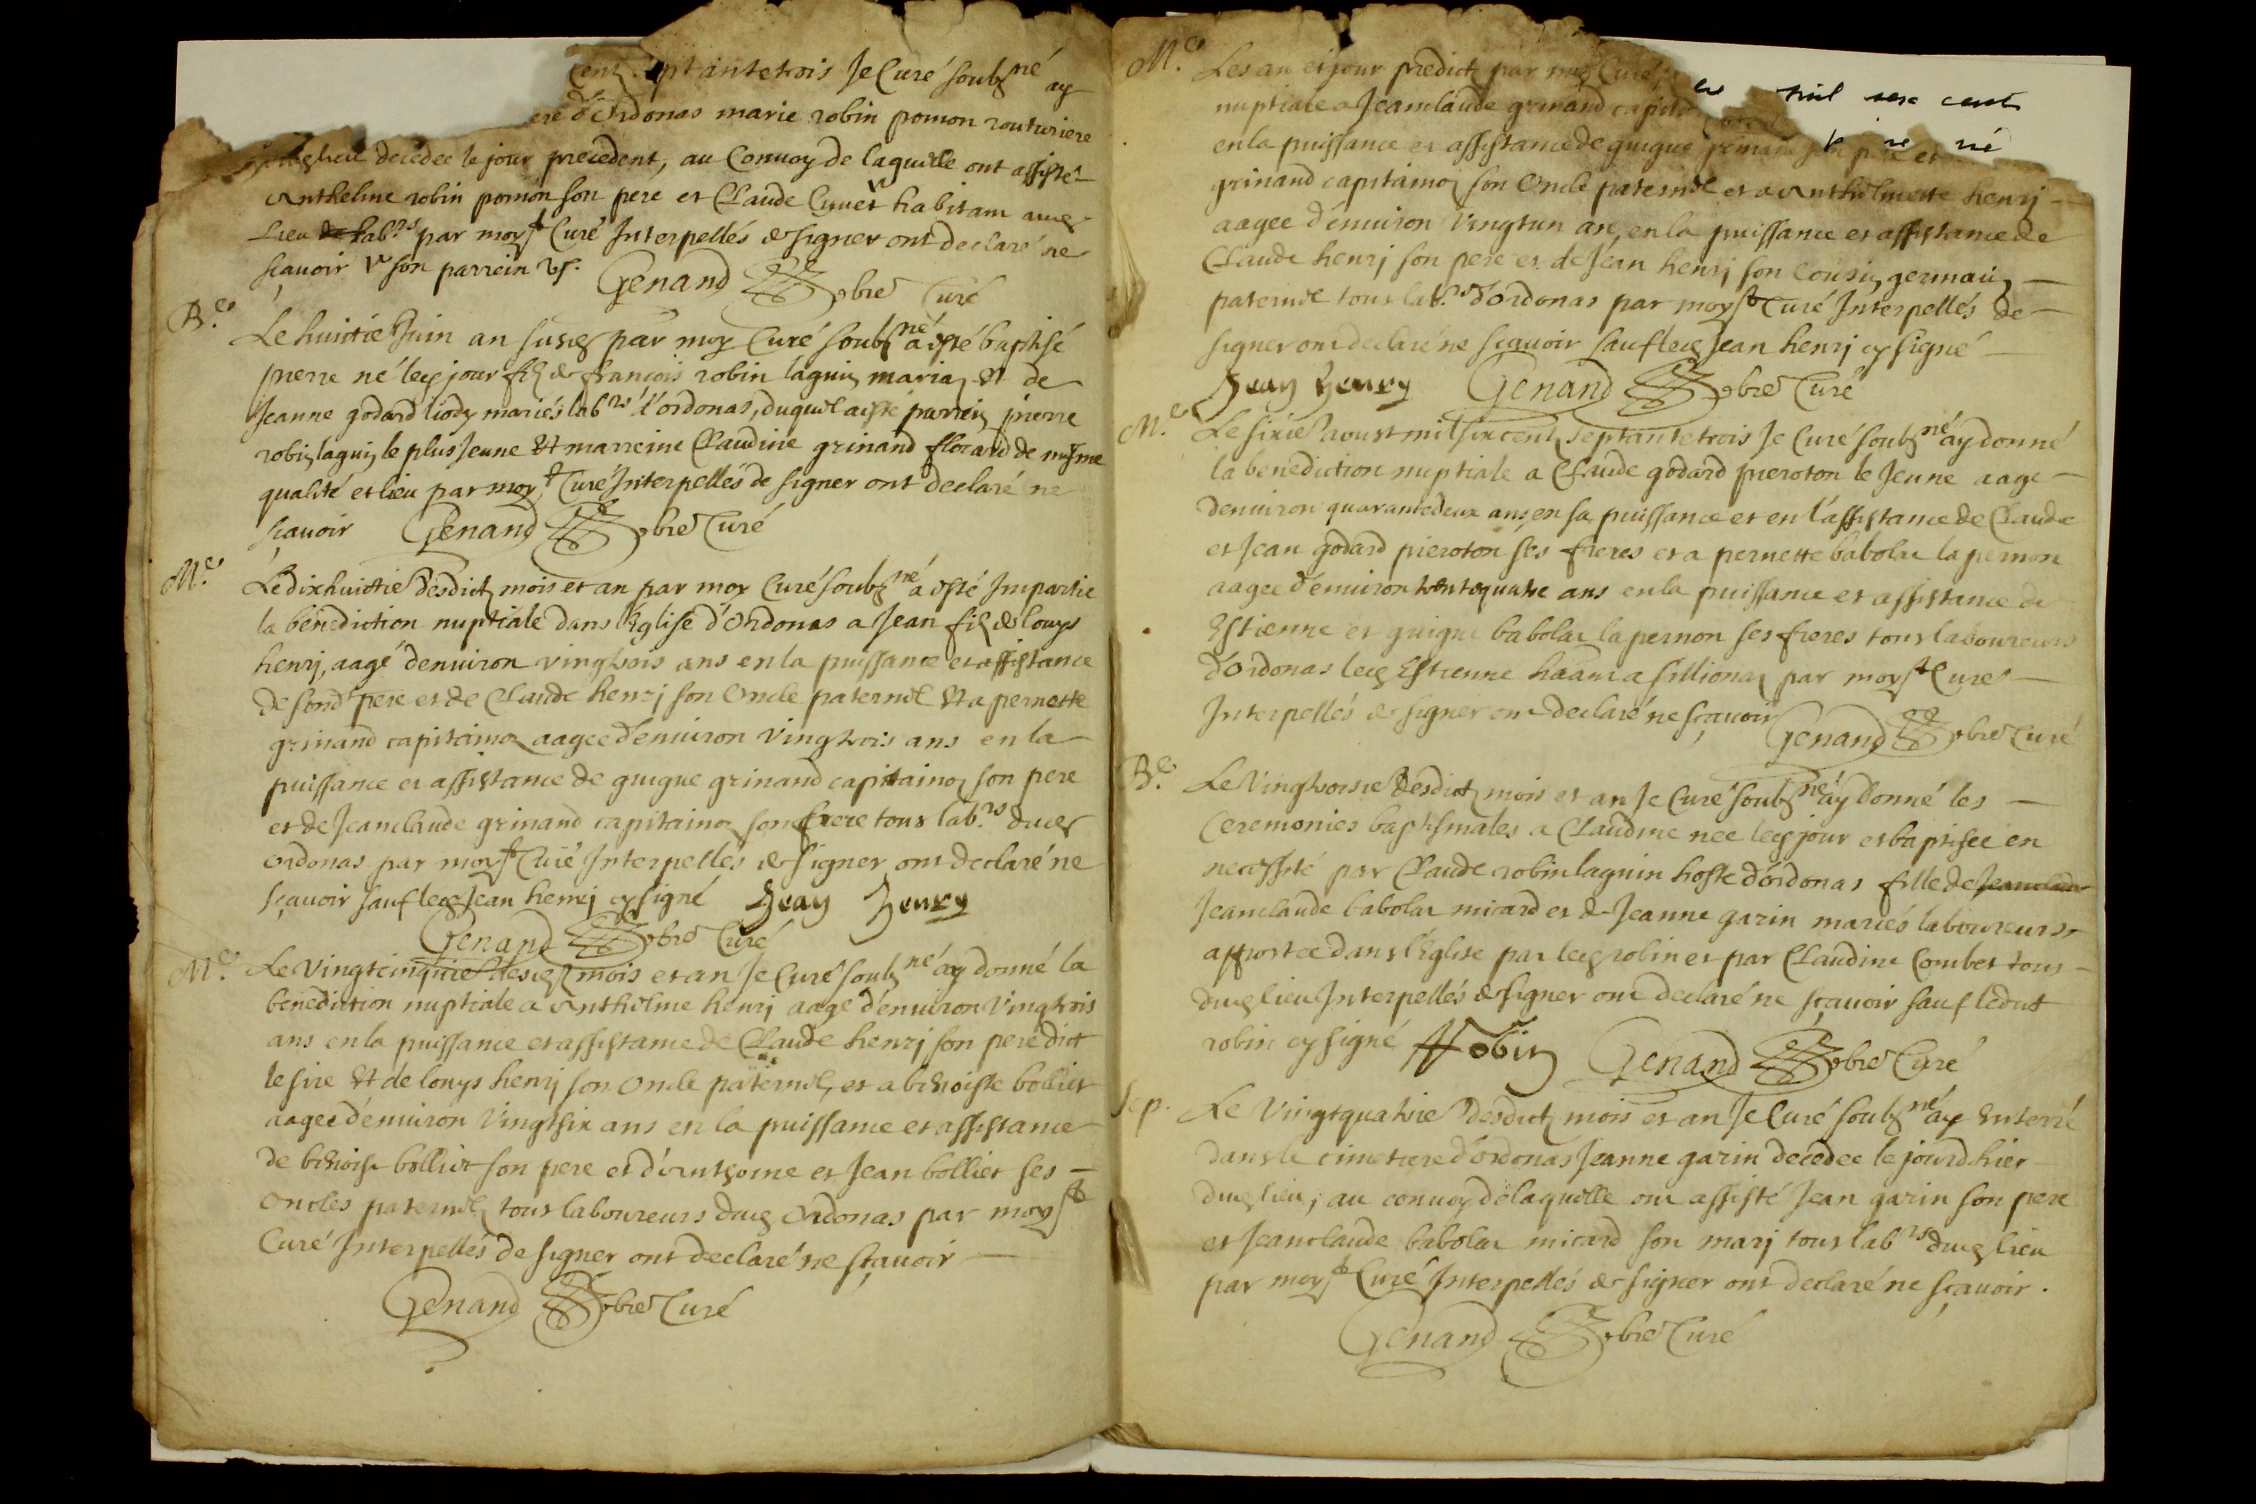 Cent septantetrois Je Curé soubz.né ay
d'Ordonas marie robin pomon routuriere
lieu decedee le jour precedent, au Convoy de laquelle ont assisté
Anthelme robin pomon son pere et Claude Cuuet habitant
Lieu de lab.rs par moy sd Curé Interpellés de signer ont declaré ne
sçavoir v son parrein
Genand pbre Curé
B.e
Le huictie Juin an susd par moy Curé soubz.né a esté baptisé
pierre né led jour fils de françois robin laguin maria et de
Jeanne godard liody mariés lab.rs d'ordonas, duquel a esté parrein pierre
robin laguin le plus Jeune et marreine Claudine grinand florard de mesme
qualité et lieu par moy sd Curé Interpellés de signer ont declaré ne
sçavoir Genand pbre Curé
M.e
Le dixhuictie desdictz mois et an par moy Curé soubz.né a esté Impartie
la benediction nuptiale dans l'Eglise d'Ordonas a Jean filz de Louys
henrj, aagé denuiron vingtrois ans en la puissance et assistance
de sond pere et de Claude henrj son Oncle paternel et a pernette
grinand capitainoz aagee d'enuiron vingtrois ans en la
puissance et assistance de guigue grinand capitainoz son pere
et de Jeanclaude grinand capitainoz son frere tous lab.rs dud
ordonas par moy sd Curé Interpellés de signer ont declaré ne
sçavoir sauf led Jean henrj cy signé Jean Henry
Genand pbre Curé
M.e
Le Vingtcinquie desd mois et an Je Curé soubz.né ay donné la
benediction nuptiale a Anthelme henrj aagé d'enuiron vingtrois
ans en la puissance et assistance de Claude henrj son pere dict
le sire et de louys henrj son Oncle paternel, et a benoiste bolliet
aagee d'enuiron vingtsix ans en la puissance et assistance
de benoist bolliet son pere et d'anthoine et Jean bolliet ses
oncles paternelz tous laboureurs dud Ordonas par moy sd
Curé Interpellés de signer ont declaré ne sçavoir
Genand pbre Curé
M.e
Les an et jour predictz par moy Curé
nuptiale a Jeanclaude grinand capit
en la puissance et assistance de guigue grinand son pere et
grinand capitainoz son Oncle paternel et a Anthelmette henrj
aagee d'enuiron vingtun an, en la puissance et assistance de
Claude henrj son pere et de Jean henrj son Cousin germain
paternel tous lab.rs d'Ordonas par moy sd Curé Interpellés de
signer ont declaré ne sçavoir sauf led Jean henrj cy signé
Jean Henry Genand pbre Curé
M.e
Le sixie aoust mil six cent septantetrois Je Curé soubz.né ay donné
la benediction nuptiale a Claude godard pieroton le Jeune aagé
denuiron quarantedeux ans en sa puissance et en l'assistance de Claude
et Jean godard pieroton ses freres et a pernette babolat la pernon
aagee d'enuiron trentequatre ans en la puissance et assistance de
Estienne et guigue babolat la pernon ses freres tous laboureurs
d'Ordonas led Estienne a sillionaz par moy sd Curé
Interpellés de signer ont declaré ne sçavoir Genand pbre Curé
B.e
Le Vingtroisie desdictz mois et an Je Curé soubz.né ay donné les
Ceremonies baptismales a Claudine nee led jour et baptisee en
necessité par Claude robin laguin hoste d'Ordonas fille de Jeanclaude
Jeanclaude babolat micard et de Jeanne garin mariés laboureurs
apportee dans l'Eglise par led robin et par Claudine Combet tous
dud lieu Interpellés de signer ont declaré ne sçavoir sauf ledict
robin cy signé Robin Genand pbre Curé
Sep.
Le Vingtquatrie desdictz mois et an Je Curé soubz.né ay Enterré
dans le cimetiere d'Ordonas Jeanne garin decedee le jourd'hier
dud lieu, au convoy de laquelle ont assisté Jean garin son pere
et Jeanclaude babolat micard son marj tous lab.rs dud lieu
par moy sd Curé Interpellés de signer ont declaré ne sçavoir.
Genand pbre Curé